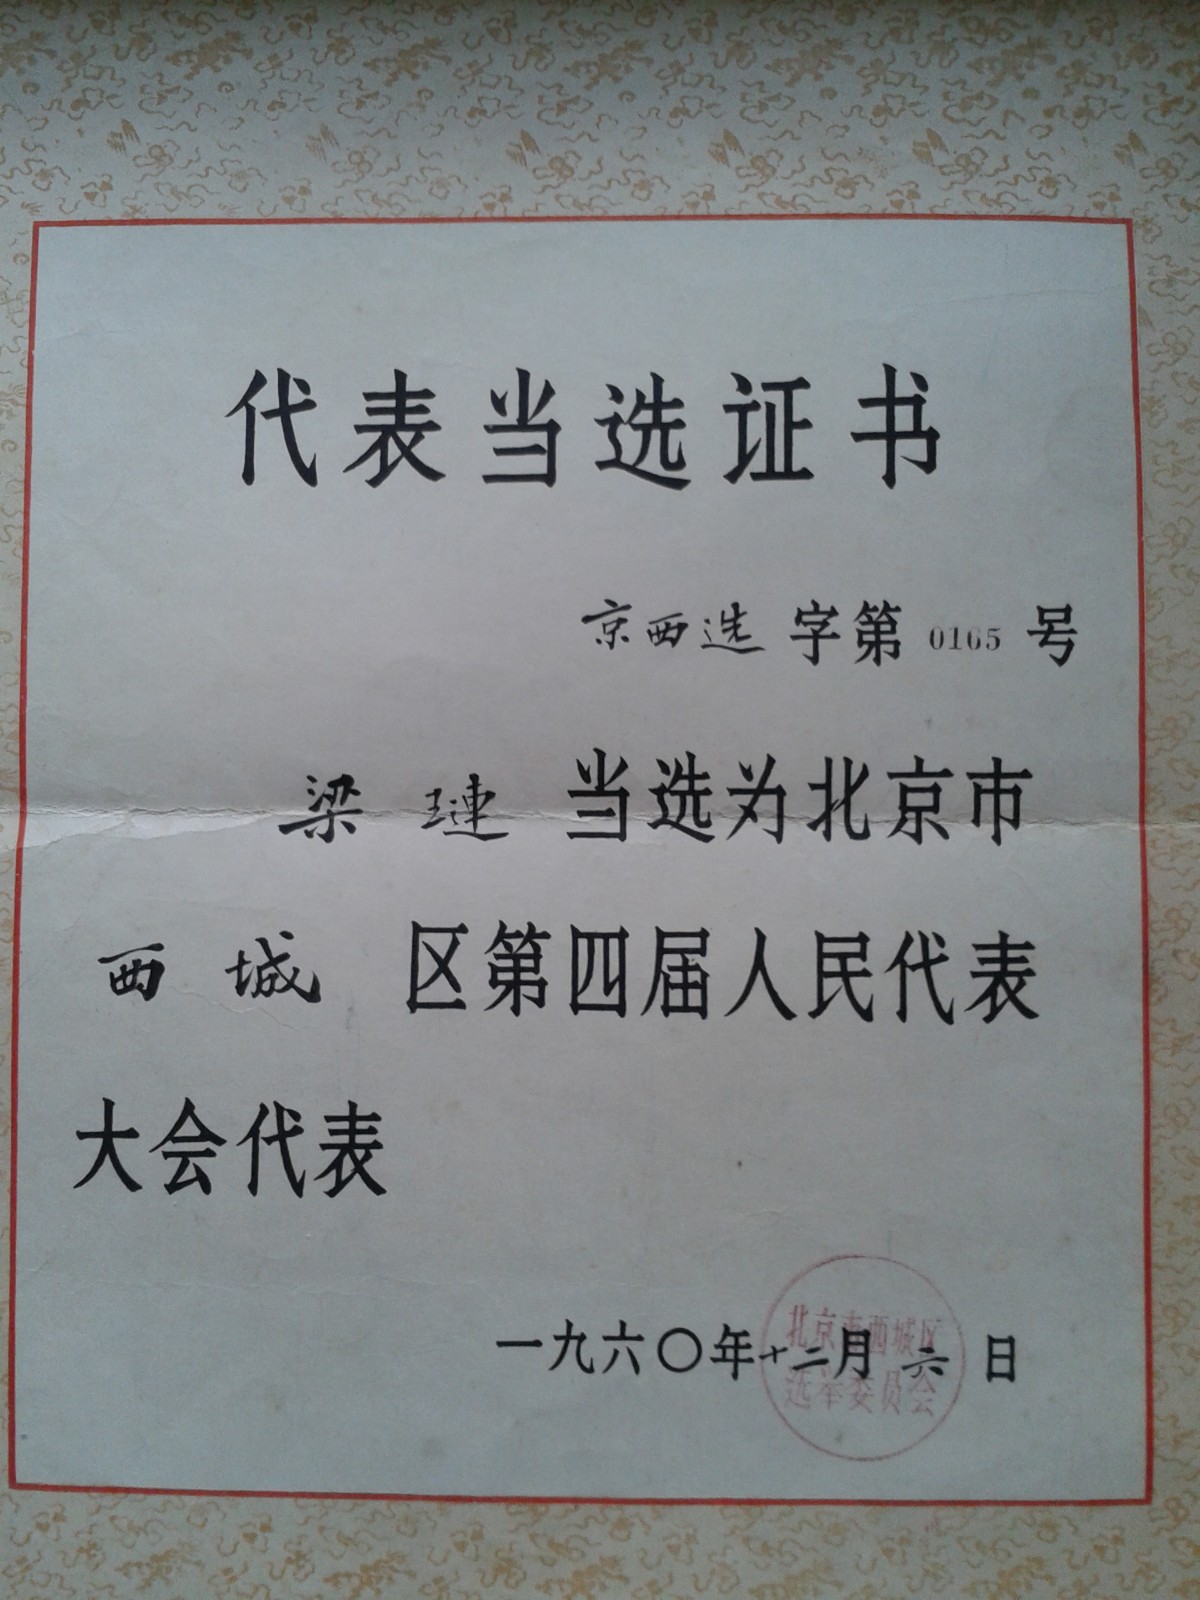 代表当选证书
京西选字第 0165 号
梁琏当选为北京市
西城区第四届人民代表
大会代表
一九六〇年十二月六日
北京市西城区
选举委员会